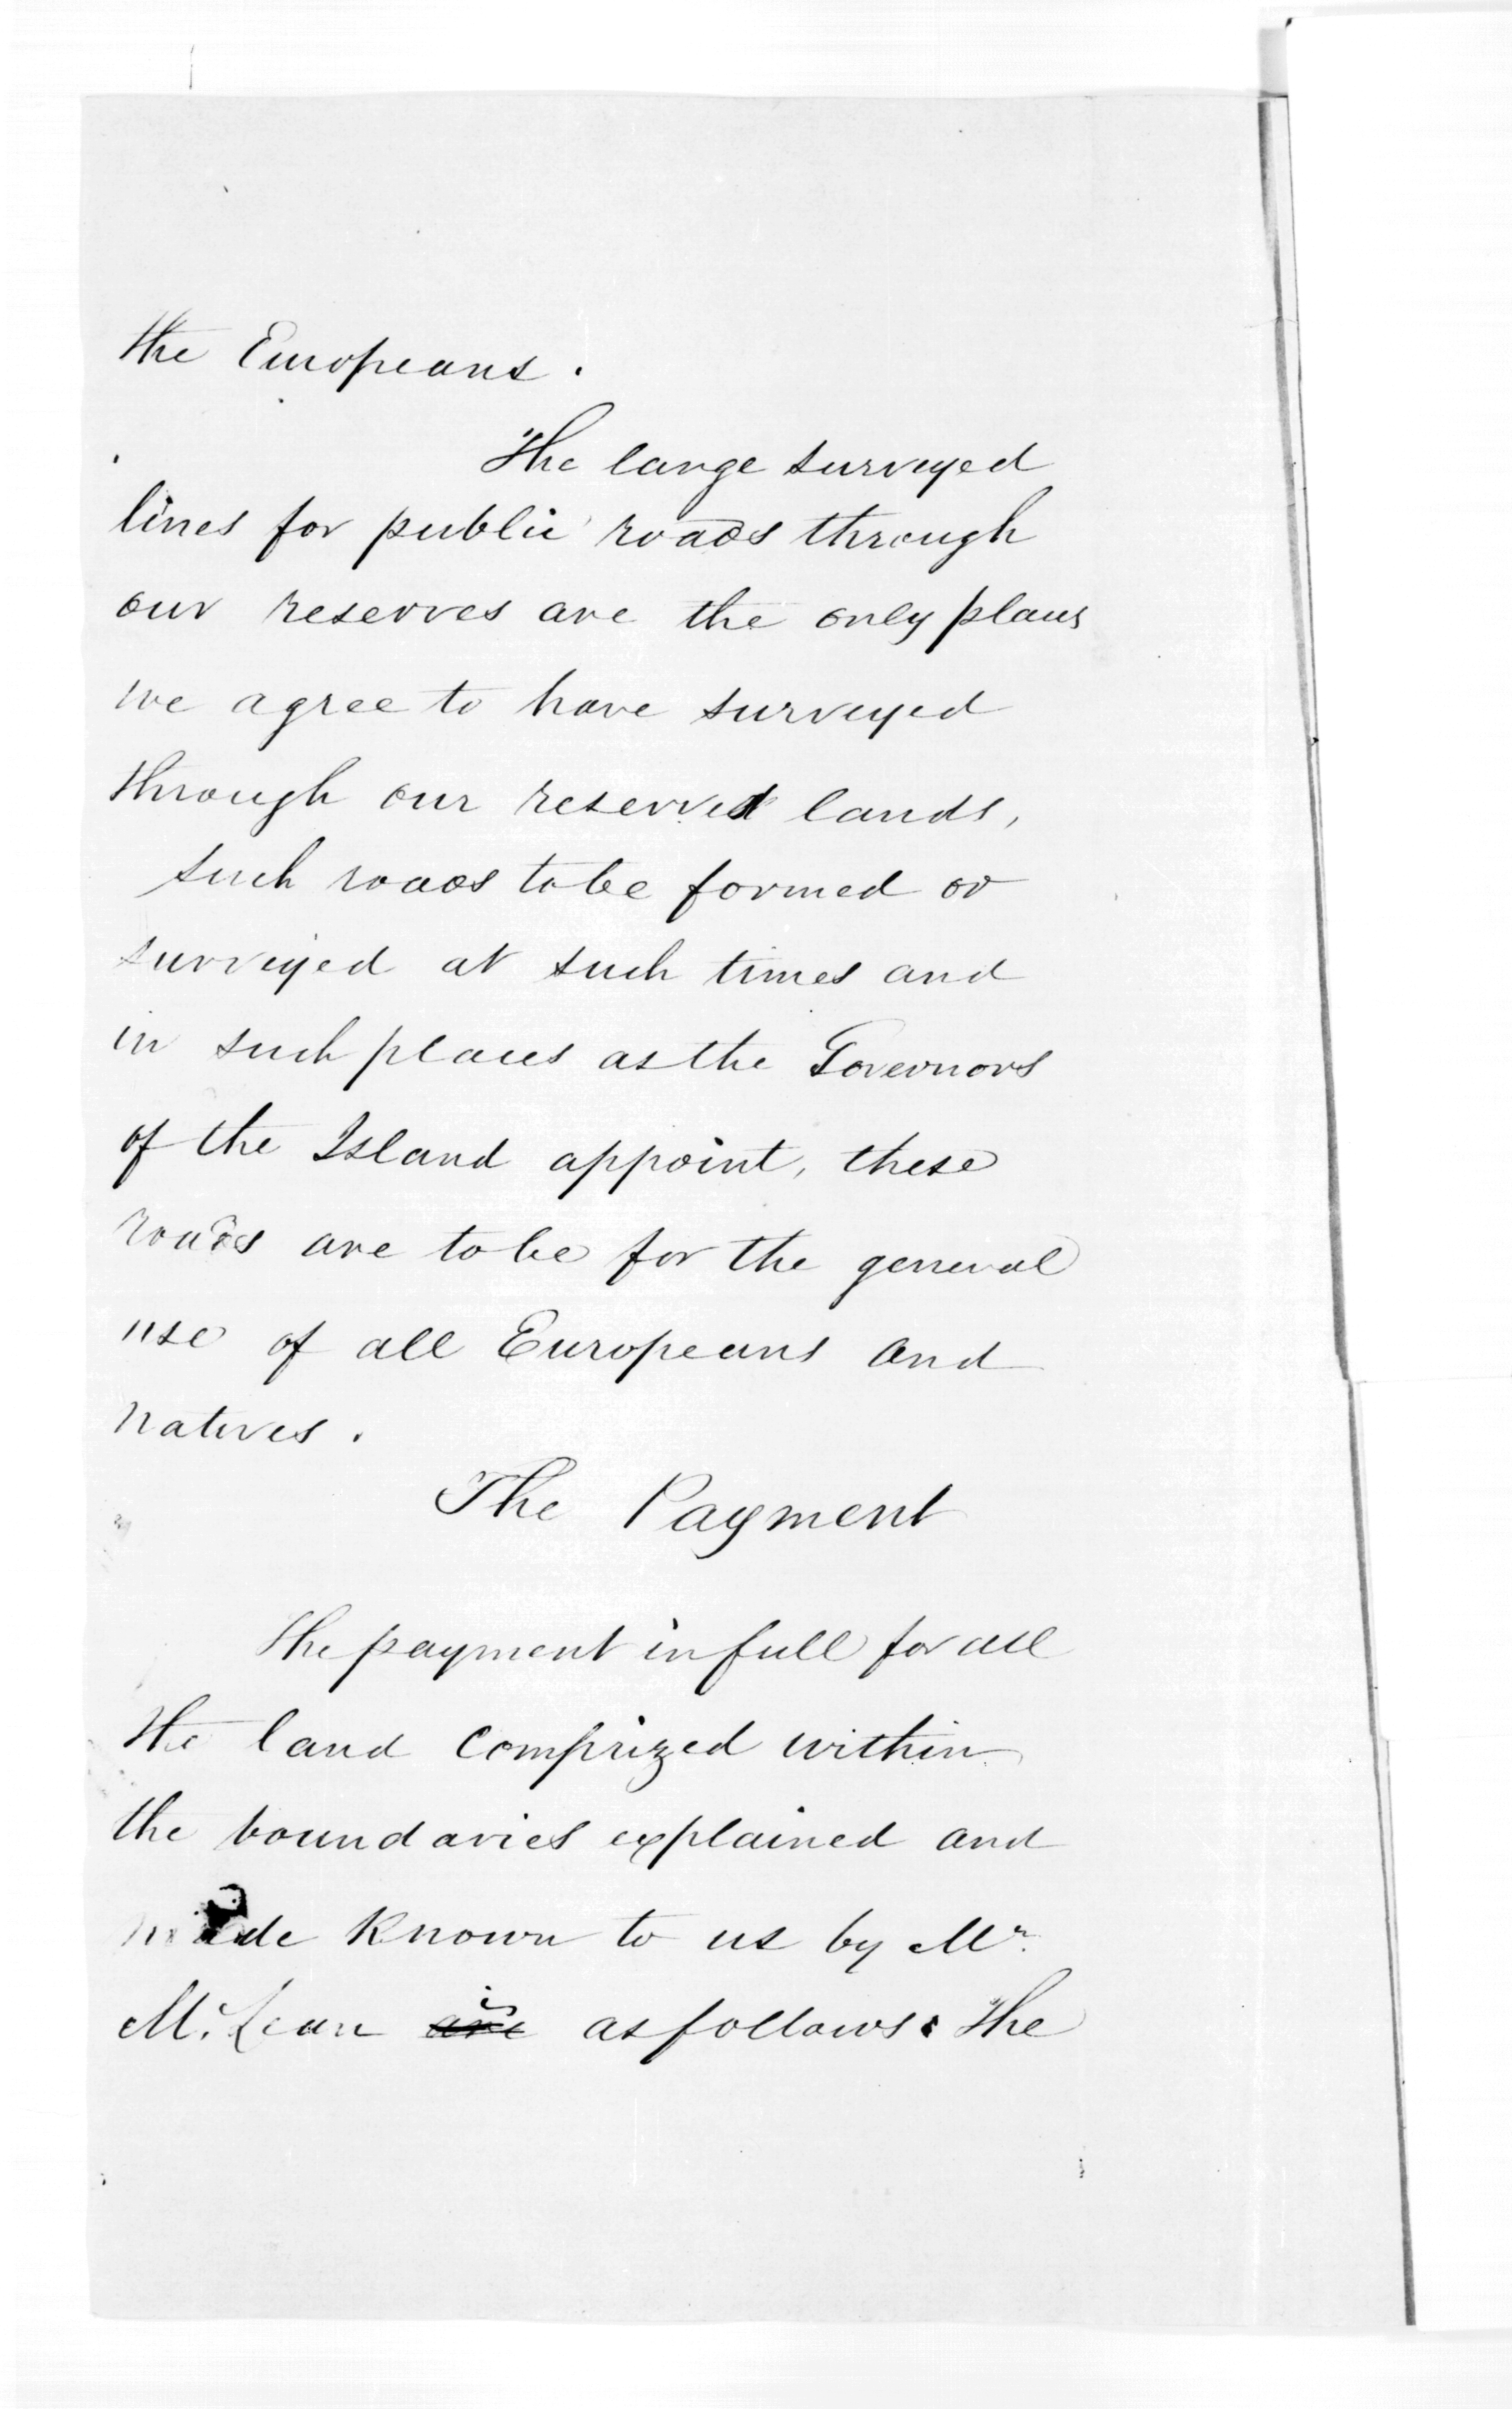 the Europeans.
The large surveyed
lines for public roads through
our reserves are the only places
we agree to have surveyed
through our reserved lands,
such roads to be formed or
surveyed at such times and
in such places as the Governors
of the Island appoint, these
roads are to be for the general
use of all Europeans and
natives.
The Payment
The payment in full for all
the land comprized within
the boundaries explained and
made known to us by Mr.
McLean are is as follows: The